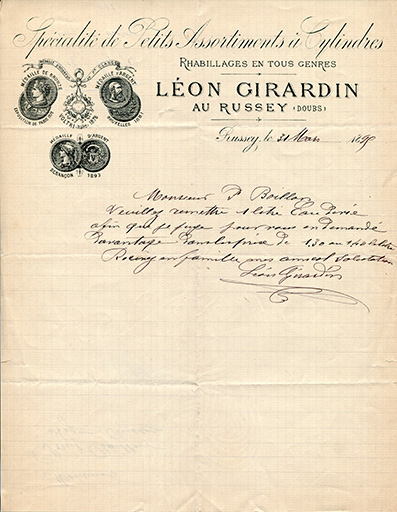 Spécialité de Petits Assortiments à Cylindres
RHABILLAGES EN TOUS GENRES
LÉON GIRARDIN
AU RUSSEY (DOUBS)
MÉDAILLE DE BRONZE
EXPOSITION DE PARIS
MÉDAILLE D'ARGENT
BRUXELLES
MÉDAILLE D'ARGENT
BESANÇON 1893
Russey, le 31 Mars 1898
Monsieur P Boillon
Veuillez remettre 1 litre Eau de vie
afin que je puge pour vous en demandé
davantage dans les prix de 130 au 140 le litre
Recevez en famille mes amical Salutation
Léon Girardin